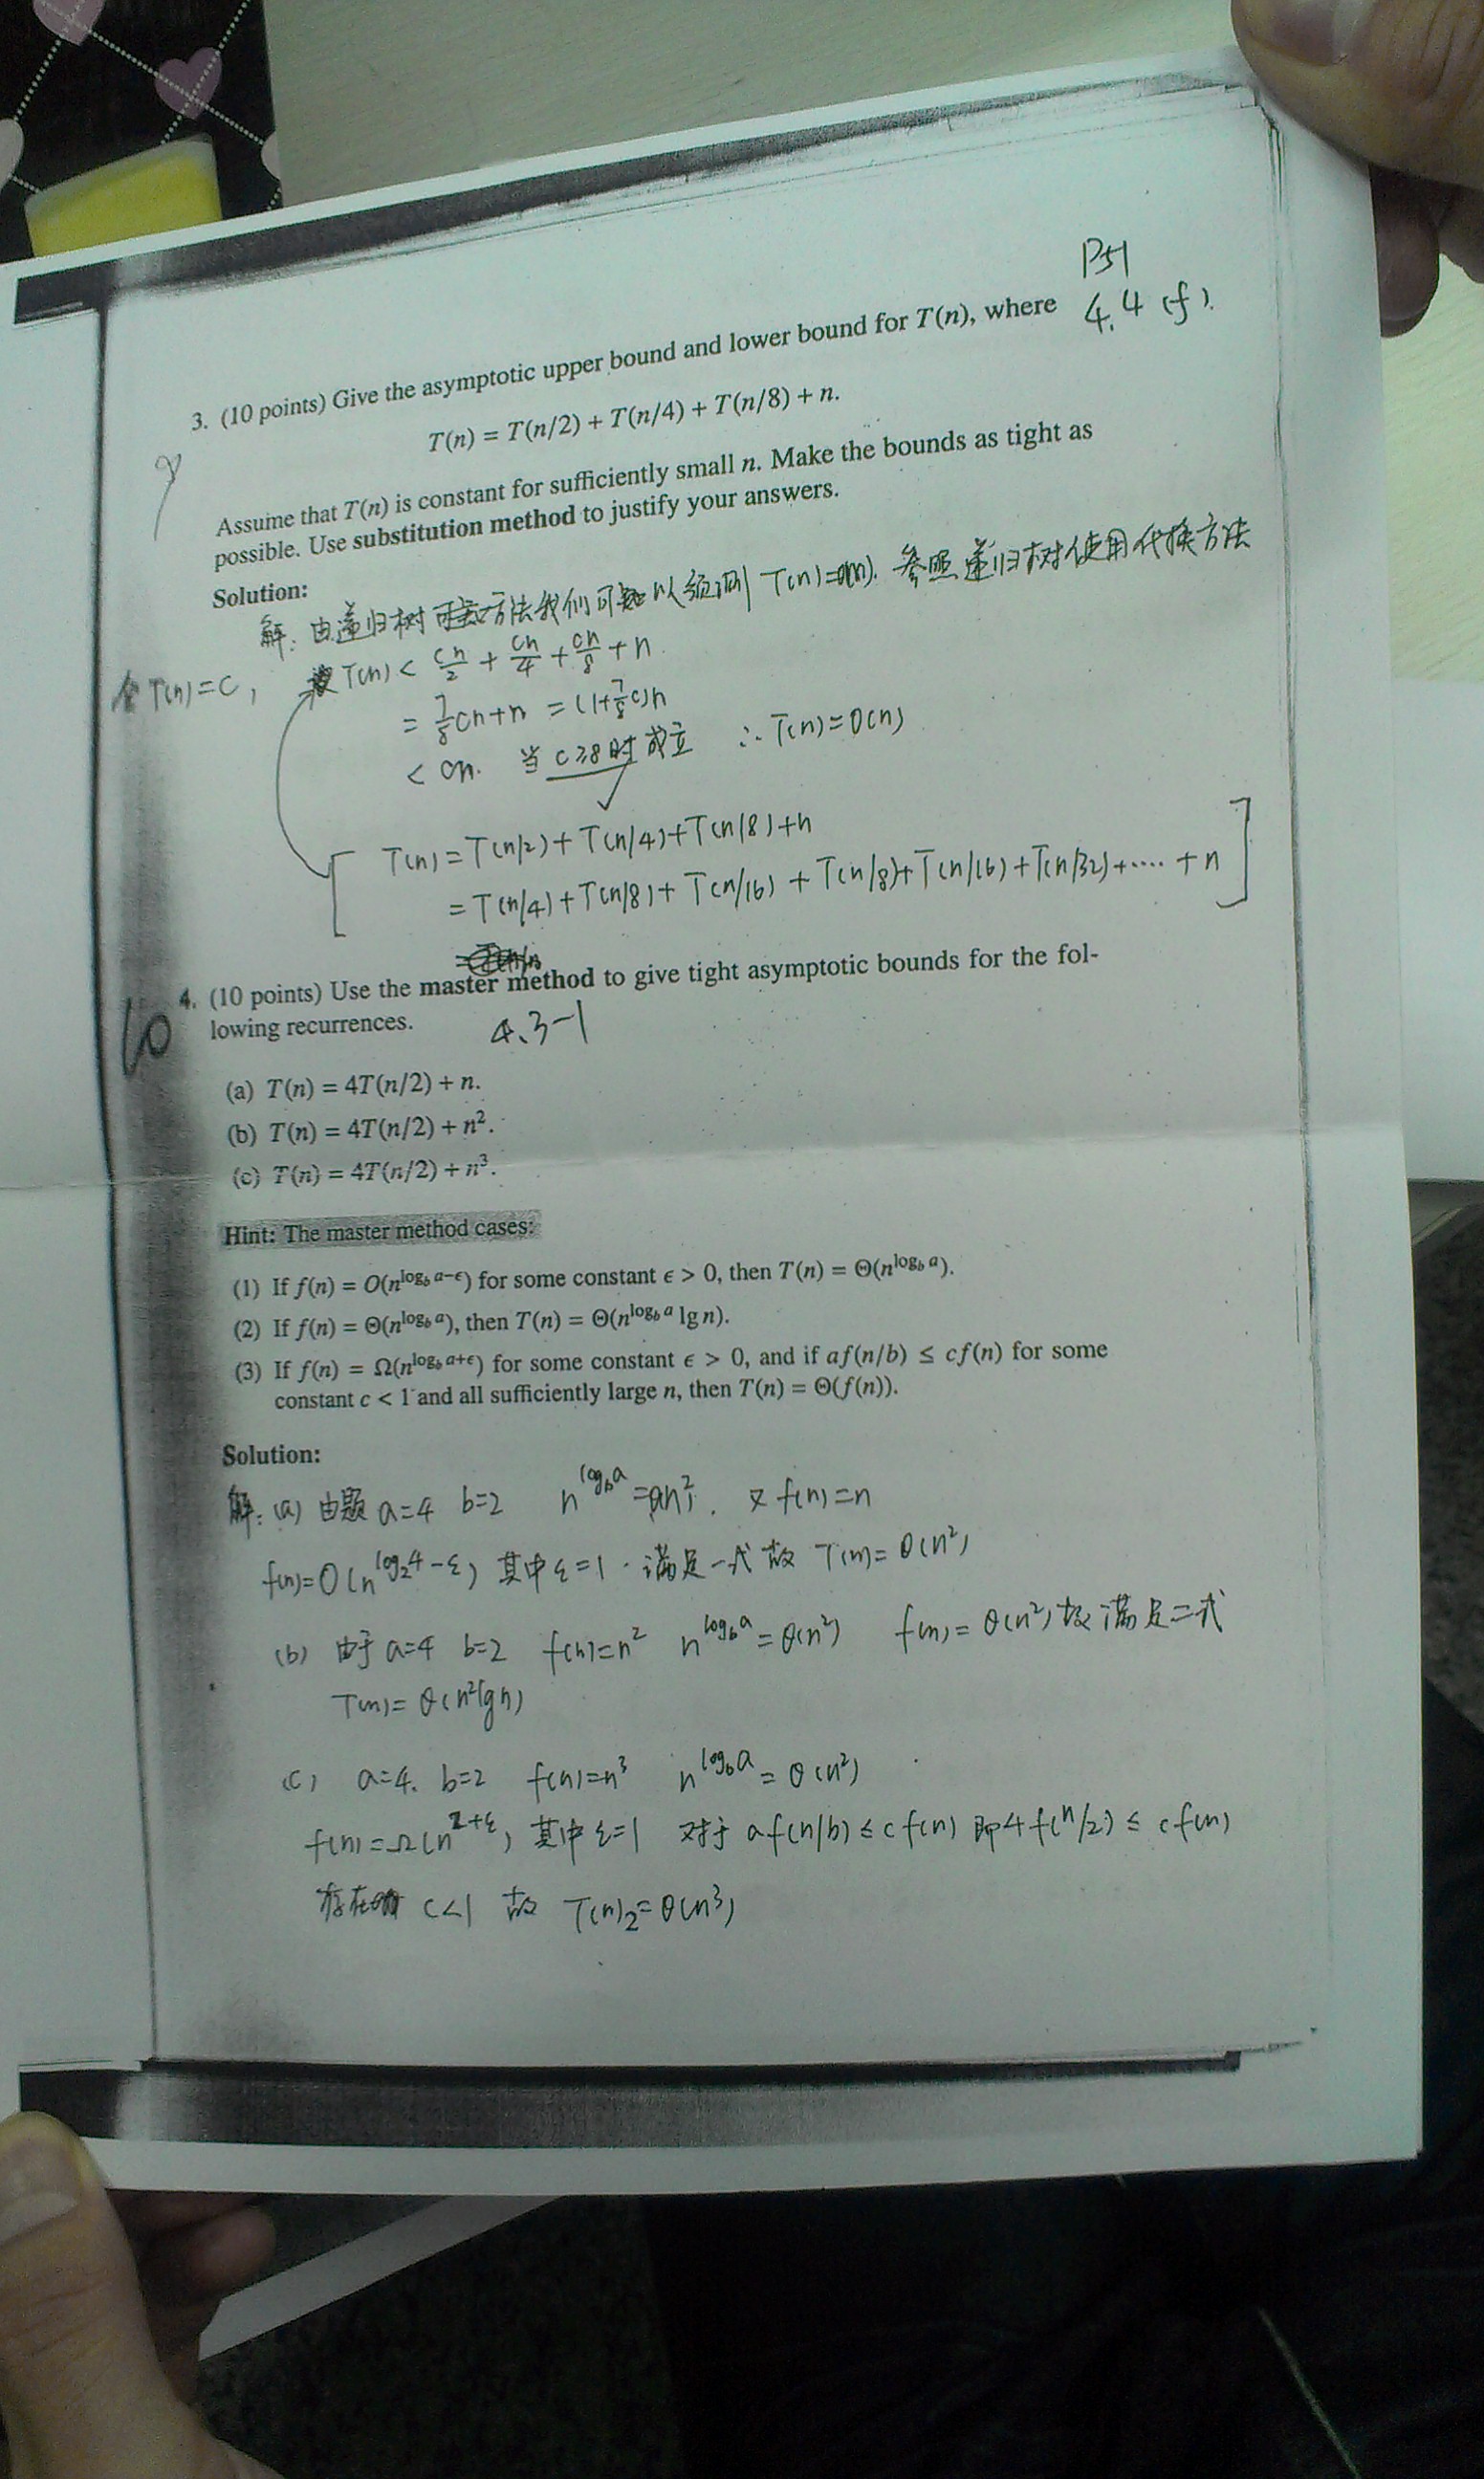 P51
4.4 (f).
3. (10 points) Give the asymptotic upper bound and lower bound for T(n), where
T(n) = T(n/2) + T(n/4) + T(n/8) + n.
Assume that T(n) is constant for sufficiently small n. Make the bounds as tight as
possible. Use substitution method to justify your answers.
Solution:
解: 由递归树方法我们可以预测 T(n)=O(n). 参照递归树使用代换方法
令T(n)=C, T(n) < cn/2 + cn/4 + cn/8 + n.
= 7/8 cn+n = (1+7/8 c)n
< cn. 当 c≥8时 成立 ∴ T(n)=O(n)
T(n) = T(n/2) + T(n/4) + T(n/8) + n
= T(n/4) + T(n/8) + T(n/16) + T(n/8) + T(n/16) + T(n/32) + .... + n
10
4. (10 points) Use the master method to give tight asymptotic bounds for the fol-
lowing recurrences.
4.3-1
(a) T(n) = 4T(n/2) + n.
(b) T(n) = 4T(n/2) + n².
(c) T(n) = 4T(n/2) + n³.
Hint: The master method cases:
(1) If f(n) = O(n^{log_b a−ϵ}) for some constant ϵ > 0, then T(n) = Θ(n^{log_b a}).
(2) If f(n) = Θ(n^{log_b a}), then T(n) = Θ(n^{log_b a} lg n).
(3) If f(n) = Ω(n^{log_b a+ϵ}) for some constant ϵ > 0, and if af(n/b) ≤ cf(n) for some
constant c < 1 and all sufficiently large n, then T(n) = Θ(f(n)).
Solution:
解: (a) 由题 a=4 b=2 n^{log_b a} = θ(n²). 又 f(n)=n
f(n)=O(n^{log_2 4-ε}) 其中 ε=1. 满足一式 故 T(n)=θ(n²)
(b) 由于 a=4 b=2 f(n)=n² n^{log_b a}=θ(n²) f(n)=θ(n²) 故 满足二式
T(n)=θ(n²lgn)
(c) a=4. b=2 f(n)=n³ n^{log_b a}=θ(n²)
f(n)=Ω(n^{2+ε}) 其中 ε=1 对于 af(n/b) ≤ cf(n) 即 4f(n/2) ≤ cf(n)
存在 c<1 故 T(n)=θ(n³)